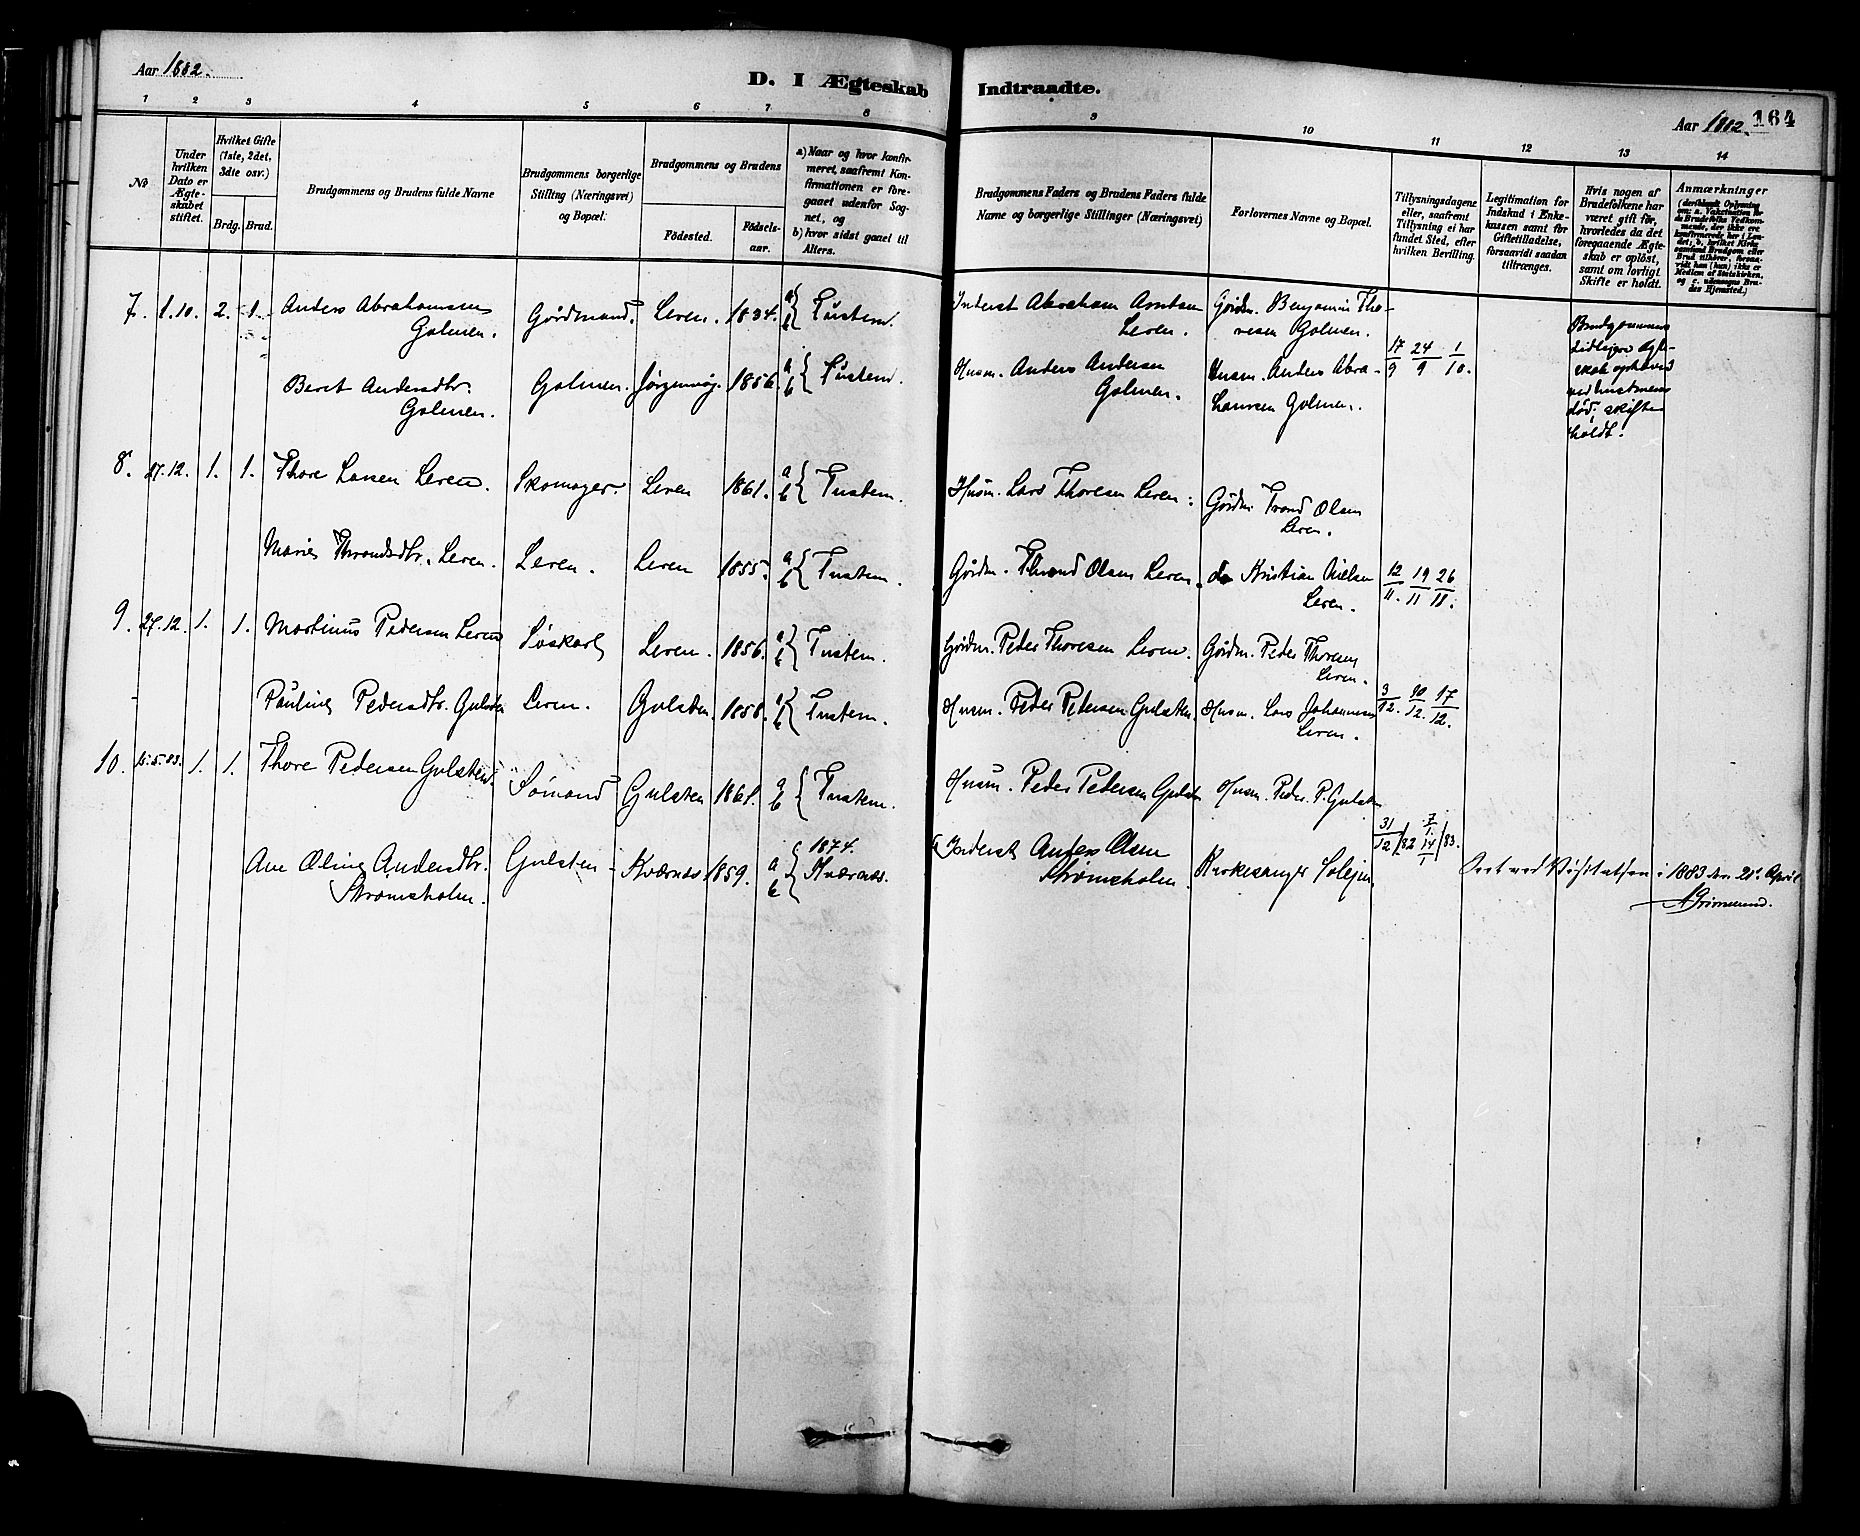 Aar 1882.
D. I Ægteskab Indtraadte.
Aar 1882. 164
1 2 3 4 5 6 7 8 9 10 11 12 13 14
No
Under hvilken Dato er Ægteskabet stiftet.
Hvilket Gifte (1ste, 2det, 3die osv.)
Brdg. Brud.
Brudgommens og Brudens fulde Navne
Brudgommens borgerlige Stilling (Næringsvei) og Bopæl.
Brudgommens og Brudens
Födested. Födselsaar.
a) Naar og hvor konfirmeret, saafremt Konfirmationen er foregaaet udenfor Sognet, og
b) hvor sidst gaaet til Alters.
Brudgommens Faders og Brudens Faders fulde Navne og borgerlige Stillinger (Næringsvei)
Forlovernes Navne og Bopæl.
Tillysningsdagene eller, saafremt Tillysning ei har fundet Sted, efter hvilken Bevilling.
Legitimation for Indskud i Enkekassen samt for Giftetilladelse, forsaavidt saadan tiltrænges.
Hvis nogen af Brudefolkene har været gift för, hvorledes da det foregaaende Ægteskab er oplöst, samt om lovligt Skifte er holdt.
Anmærkninger
7. 1.10. 2. 1. Anders Abrahamsen Golmen. Gårdmand. Leren. 1834. a b Tustern. Inderst Abraham Arntsen Leren. Gårdm. Benjamin Thoresen Golmen.
17/9 24/9 1/10.
Brudgommens tidligere Ægteskab ophævet ved hustruens død, skifte holdt.
Beret Andersdtr. Golmen. Golmen. Jørgenvåg. 1856. a b Tustern. Husm. Anders Andersen Golmen. Husm. Anders Abrahamsen Golmen.
8. 27.12. 1. 1. Thore Larsen Leren. Skomager. Leren 1861. a b Tustern. Husm. Lars Thoresen Leren. Gårdm. Trond Olsen Leren.
Marie Throndsdtr. Leren. Leren. Leren 1855. a b Tustern. Gårdm. Thrond Olsen Leren. do Kristian Nielsen Leren.
12/11. 19/11 26/11.
9. 27.12. 1. 1. Martinus Pedersen Leren Søskarl Leren. 1856. a b Tustern. Gårdm. Peder Thoresen Leren. Gårdm. Peder Thoresen Leren.
Pauline Pedersdtr. Gulsten Leren. Gulsten. 1858. a b Tustern. Husm. Peder Pedersen Gulsten. Husm. Lars Johannesen Leren.
3/12. 10/12. 17/12.
10. 15.5.83. 1. 1. Thore Pedersen Gulsten. Sömand Gulsten 1861. a b Tustern. Husm. Peder Pedersen Gulsten Husm. Peder P. Gulsten
Ane Oline Andersdtr. Strømsholm. Gulsten Kværnes 1859. a b 1874. Kværnes. Inderst Anders Olsen Strømsholm. Kirkesanger Solejm
31/12 /82 7/1. 14/1 /83.
Seet ved Visitatsen i 1883 den 21. April
A Grimelund.